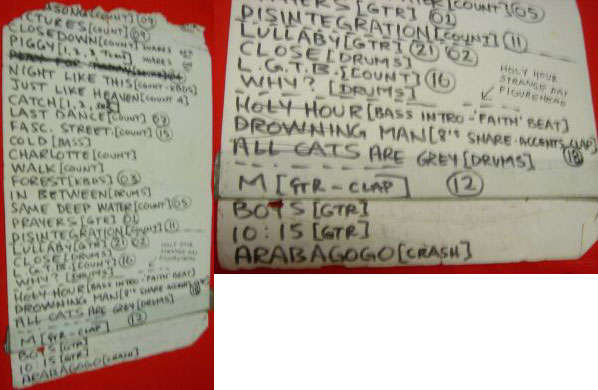 SONG[COUNT] 09
CTURES[COUNT] 09
CLOSEDOWN[COUNT] SNARES
PIGGY[1,2, SNARES
NIGHT LIKE THIS[COUNT-KBDS]
JUST LIKE HEAVEN[COUNT 4]
CATCH[1,2,
LAST DANCE[COUNT]
FASC. STREET[COUNT] 15
COLD [BASS]
CHARLOTTE[COUNT]
WALK[COUNT]
FOREST[KBDS] 03
IN BETWEEN[DRUMS]
SAME DEEP WATER[COUNT] 05
PRAYERS[GTR] 01
DISINTEGRATION[COUNT] 11
LULLABY[GTR] 21 02
CLOSE[DRUMS]
L.G.T.B.[COUNT] 16
WHY? [DRUMS]
HOLY HOUR
STRANGE DAY
FIGUREHEAD
HOLY HOUR[BASS INTRO-'FAITH' BEAT]
DROWNING MAN[8'S SNARE ACCENTS, CLAP]
ALL CATS ARE GREY[DRUMS] 18
M [GTR-CLAP] 12
BOYS [GTR]
10:15 [GTR]
ARABAGOGO[CRASH]
YERS[GTR] 01
[COUNT] 05
DISINTEGRATION[COUNT] 11
LULLABY[GTR] 21 02
CLOSE[DRUMS]
L.G.T.B.[COUNT] 16
WHY? [DRUMS]
HOLY HOUR
STRANGE DAY
FIGUREHEAD
HOLY HOUR [BASS INTRO-'FAITH' BEAT]
DROWNING MAN[8'S SNARE-ACCENTS, CLAP]
ALL CATS ARE GREY[DRUMS] 18
M [GTR-CLAP] 12
BOYS [GTR]
10:15 [GTR]
ARABAGOGO[CRASH]